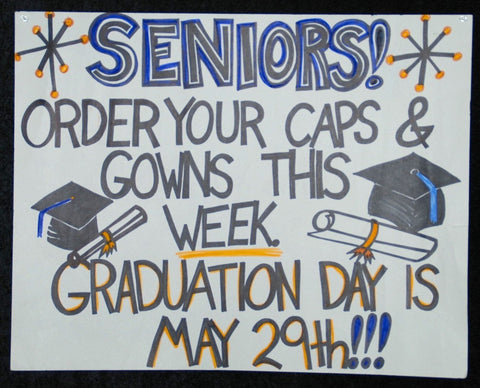 SENIORS!
ORDER YOUR CAPS &
GOWNS THIS
WEEK.
GRADUATION DAY IS
MAY 29th!!!